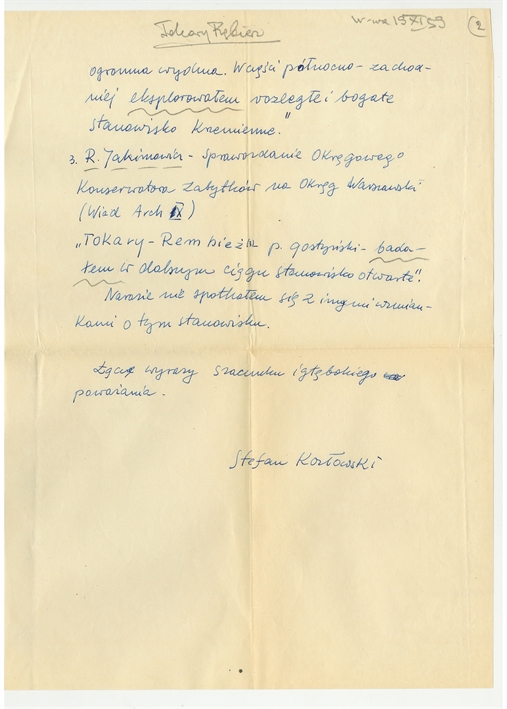 Tokary Rębierz
W-wa 19 XI 59
2
ogromna wydma. W części północno-zachod-
niej eksplorowałem rozległe i bogate
stanowisko krzemienne."
3. R. Jakimowicz - Sprawozdanie Okręgowego
Konserwatora Zabytków na Okręg Warszawski
(Wiad Arch IX)
„Tokary - Rembież p. gostyniński - bada-
łem w dalszym ciągu stanowisko otwarte".
Narazie nie spotkałem się z innymi wzmian-
kami o tym stanowisku.
Łączę wyrazy szacunku i głębokiego
poważania.
Stefan Kozłowski